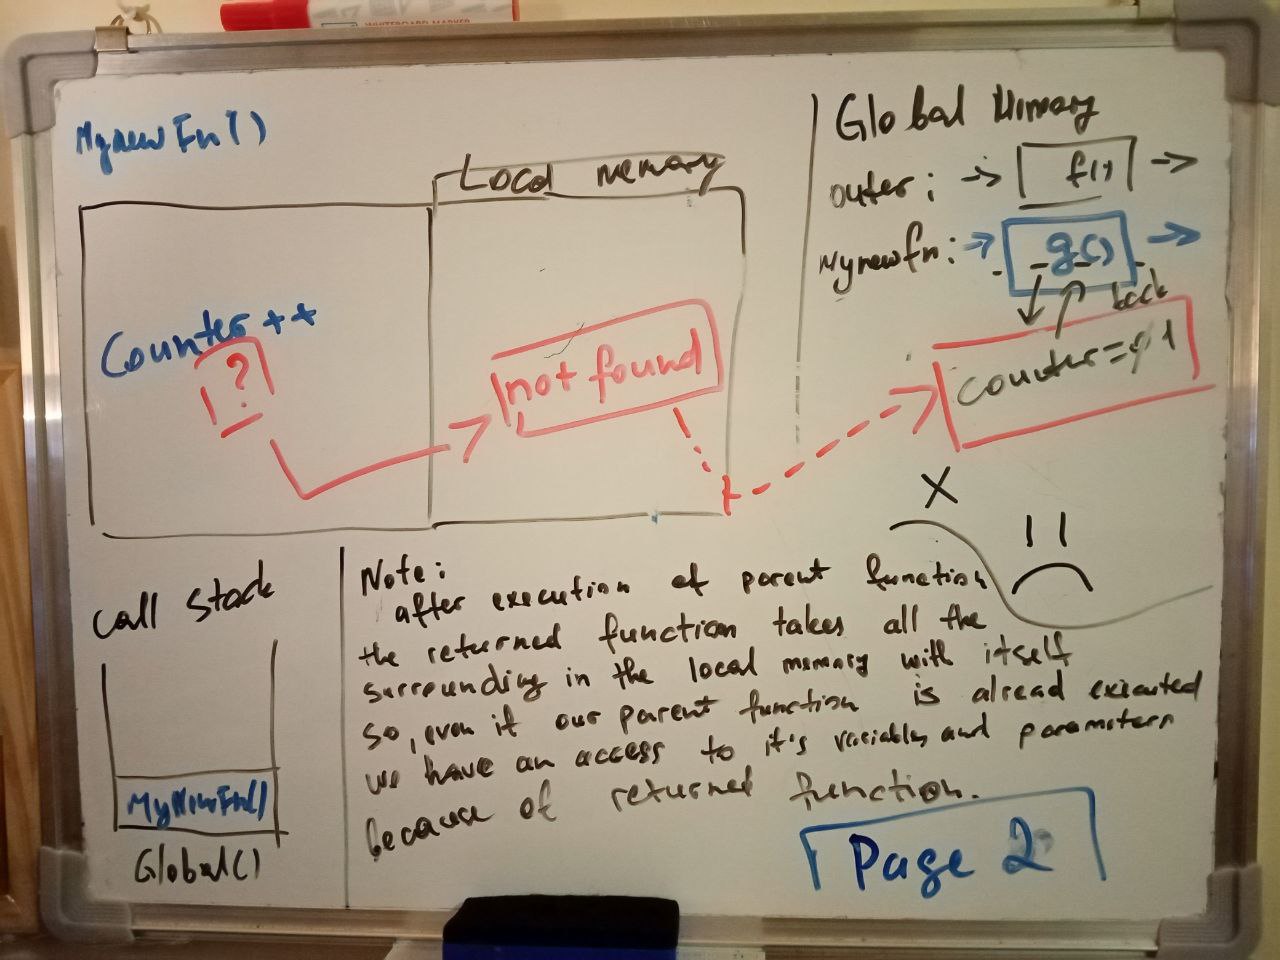 WHITEBOARD MARKER
MynewFn()
Local memory
Counter++
?
not found
Global Mimory
outer:
f()
Mynewfn:
g()
back
counter=0 1
X
Call Stack
MyNewFn()
Global()
Note:
after execution of parent function
the returned function takes all the
surrounding in the local memory with itself
so, even if our parent function is alread executed
we have an access to it's variables and parameters
because of returned function.
Page 2